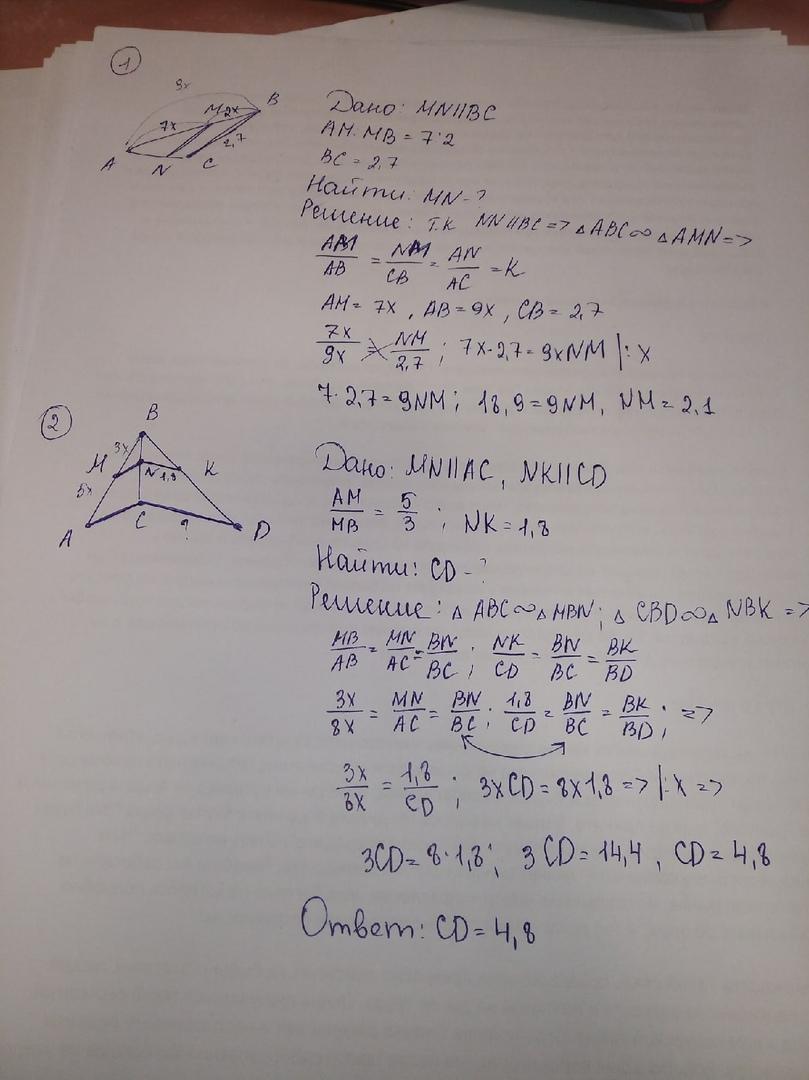 1
9x
M 2x B
7x
2,7
A N C
Дано: MN||BC
AM:MB = 7:2
BC = 2,7
Найти: MN-?
Решение: т.к NN||BC => △ABC∞△AMN =>
AM/AB = NM/CB = AN/AC = K
AM = 7x, AB = 9x, CB = 2,7
7x/9x = NM/2,7; 7x·2,7 = 9xNM |:x
7·2,7 = 9NM; 18,9 = 9NM, NM = 2,1
2
B
3x
M N 1,8 K
5x
A C ? D
Дано: MN||AC, NK||CD
AM/MB = 5/3; NK = 1,8
Найти: CD-?
Решение: △ABC∞△MBN; △CBD∞△NBK =>
MB/AB = MN/AC = BN/BC; NK/CD = BN/BC = BK/BD
3x/8x = MN/AC = BN/BC; 1,8/CD = BN/BC = BK/BD; =>
3x/8x = 1,8/CD; 3xCD = 8x1,8 => |:x =>
3CD = 8·1,8; 3CD = 14,4, CD = 4,8
Ответ: CD = 4,8